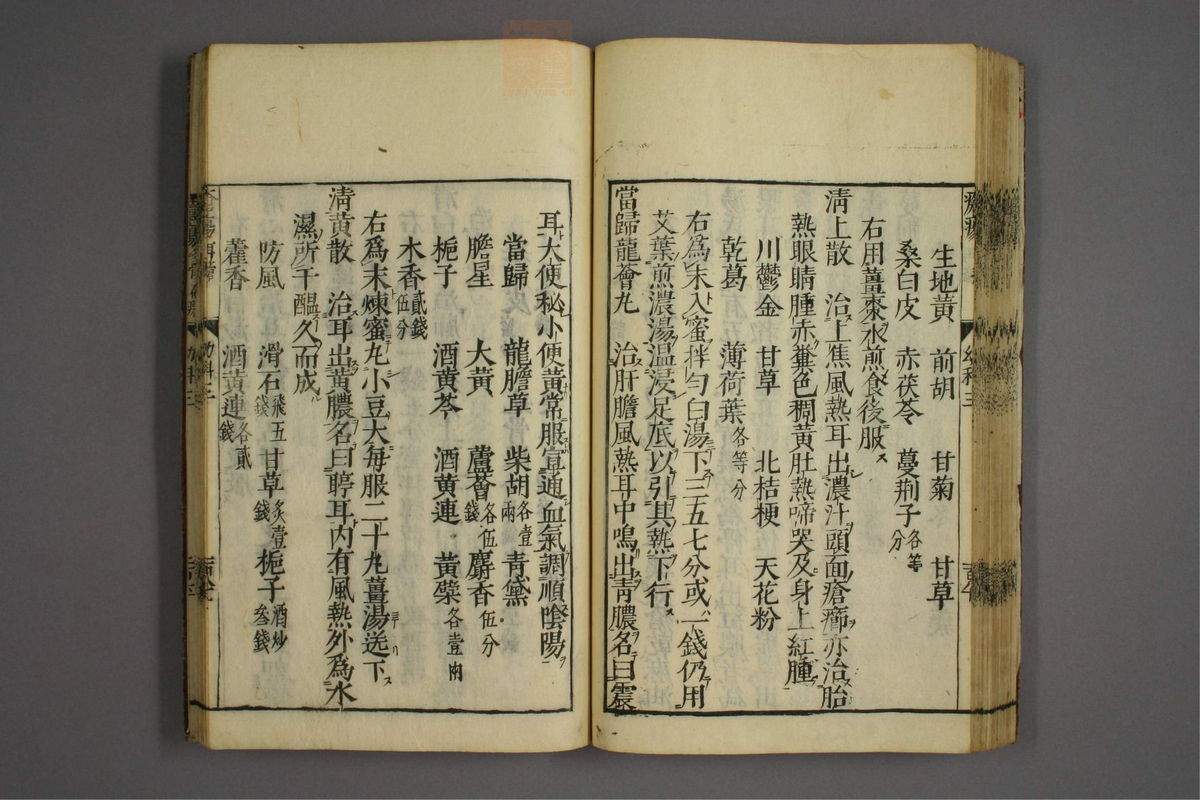 生地黃 前胡 甘菊 甘草
桑白皮 赤茯苓 蔓荆子各等分
右用薑棗水煎食後服
淸上散 治上焦風熱耳出濃汁頭面瘡癤亦治胎
熱眼睛腫赤糞色稠黃肚熱啼哭及身上紅腫
川鬱金 甘草 北桔梗 天花粉
乾葛 薄荷葉各等分
右爲末入蜜拌勻白湯下三五七分或一錢仍用
艾葉煎濃湯温浸足底以引其熱下行
當歸龍薈丸 治肝膽風熱耳中鳴出靑膿名曰震
耳大便秘小便黃常服宣通血氣調順陰陽
當歸 龍膽草 柴胡各壹兩 靑黛
膽星 大黃 蘆薈各伍錢 麝香伍分
梔子 酒黃芩 酒黃連 黃檗各壹兩
木香貳錢伍分
右爲末煉蜜丸小豆大每服二十丸薑湯送下
淸黃散 治耳出黃膿名曰聤耳内有風熱外爲水
濕所干醖久而成
防風 滑石飛五錢 甘草炙壹錢 梔子酒炒叁錢
藿香 酒黃連各貳錢